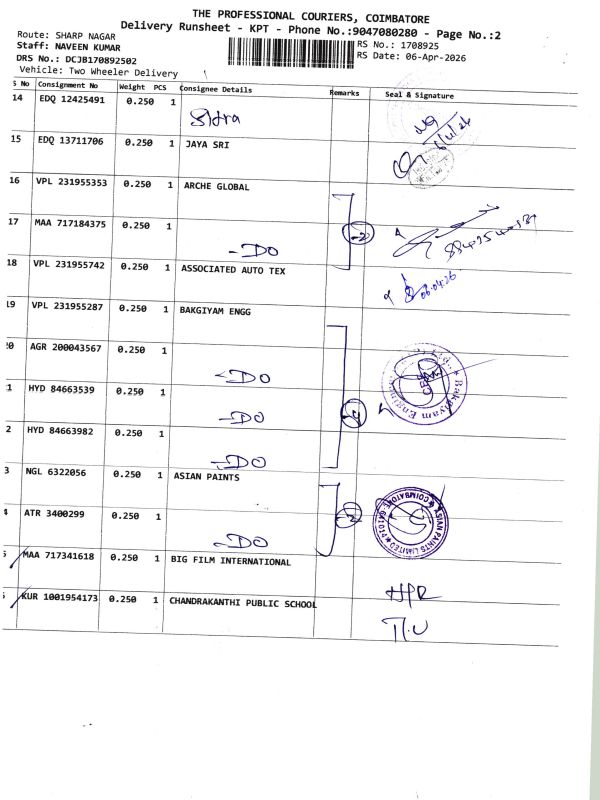 THE PROFESSIONAL COURIERS, COIMBATORE
Delivery Runsheet - KPT - Phone No.:9047080280 - Page No.:2
Route: SHARP NAGAR
RS No.: 1708925
Staff: NAVEEN KUMAR
RS Date: 06-Apr-2026
DRS No.: DCJB170892502
Vehicle: Two Wheeler Delivery
S No Consignment No Weight PCS Consignee Details Remarks Seal & Signature
14 EDQ 12425491 0.250 1
15 EDQ 13711706 0.250 1 JAYA SRI
16 VPL 231955353 0.250 1 ARCHE GLOBAL
17 MAA 717184375 0.250 1 - DO
18 VPL 231955742 0.250 1 ASSOCIATED AUTO TEX
06.04.26
19 VPL 231955287 0.250 1 BAKGIYAM ENGG
0 AGR 200043567 0.250 1 - DO
1 HYD 84663539 0.250 1 - DO
2 HYD 84663982 0.250 1 - DO
3 NGL 6322056 0.250 1 ASIAN PAINTS
4 ATR 3400299 0.250 1 - DO
ASIAN PAINTS LIMITED
COIMBATORE
5 MAA 717341618 0.250 1 BIG FILM INTERNATIONAL
6 KUR 1001954173 0.250 1 CHANDRAKANTHI PUBLIC SCHOOL